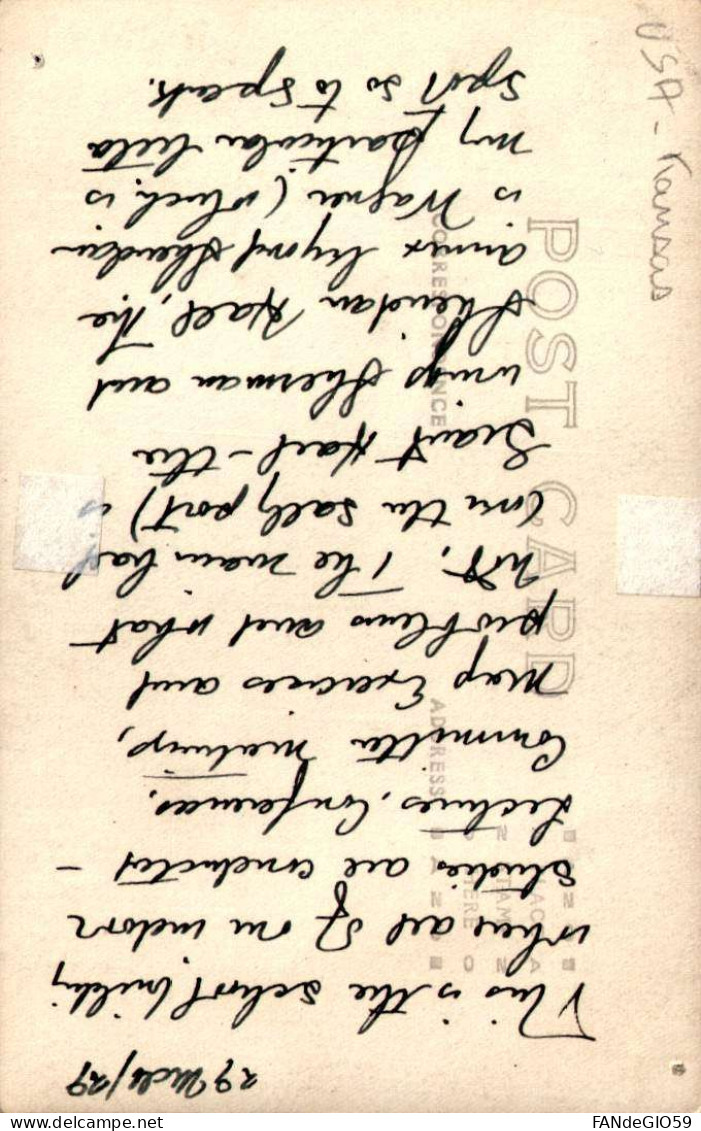 29 Mch/29
This is the school building
where all of our indoor
studies are conducted –
Lectures, Conferences,
Committee meetings,
Map Exercises and
problems and what
not. The main hall
(on the sally port) is
Grant Hall – the
wings Sherman and
Sheridan Hall, the
annex beyond Sheridan
is Wagner (which is
my particular
spot so to speak.
USA - Kansas
POST CARD
CORRESPONDENCE
ADDRESS
PLACE
STAMP
HERE
FANdeGIO59